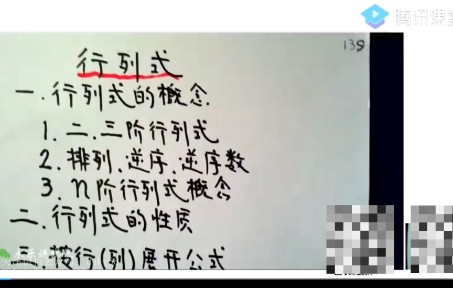 腾讯课堂
139
行列式
一.行列式的概念
1.二.三阶行列式
2.排列、逆序、逆序数
3.n阶行列式概念
二.行列式的性质
三.按行(列)展开公式